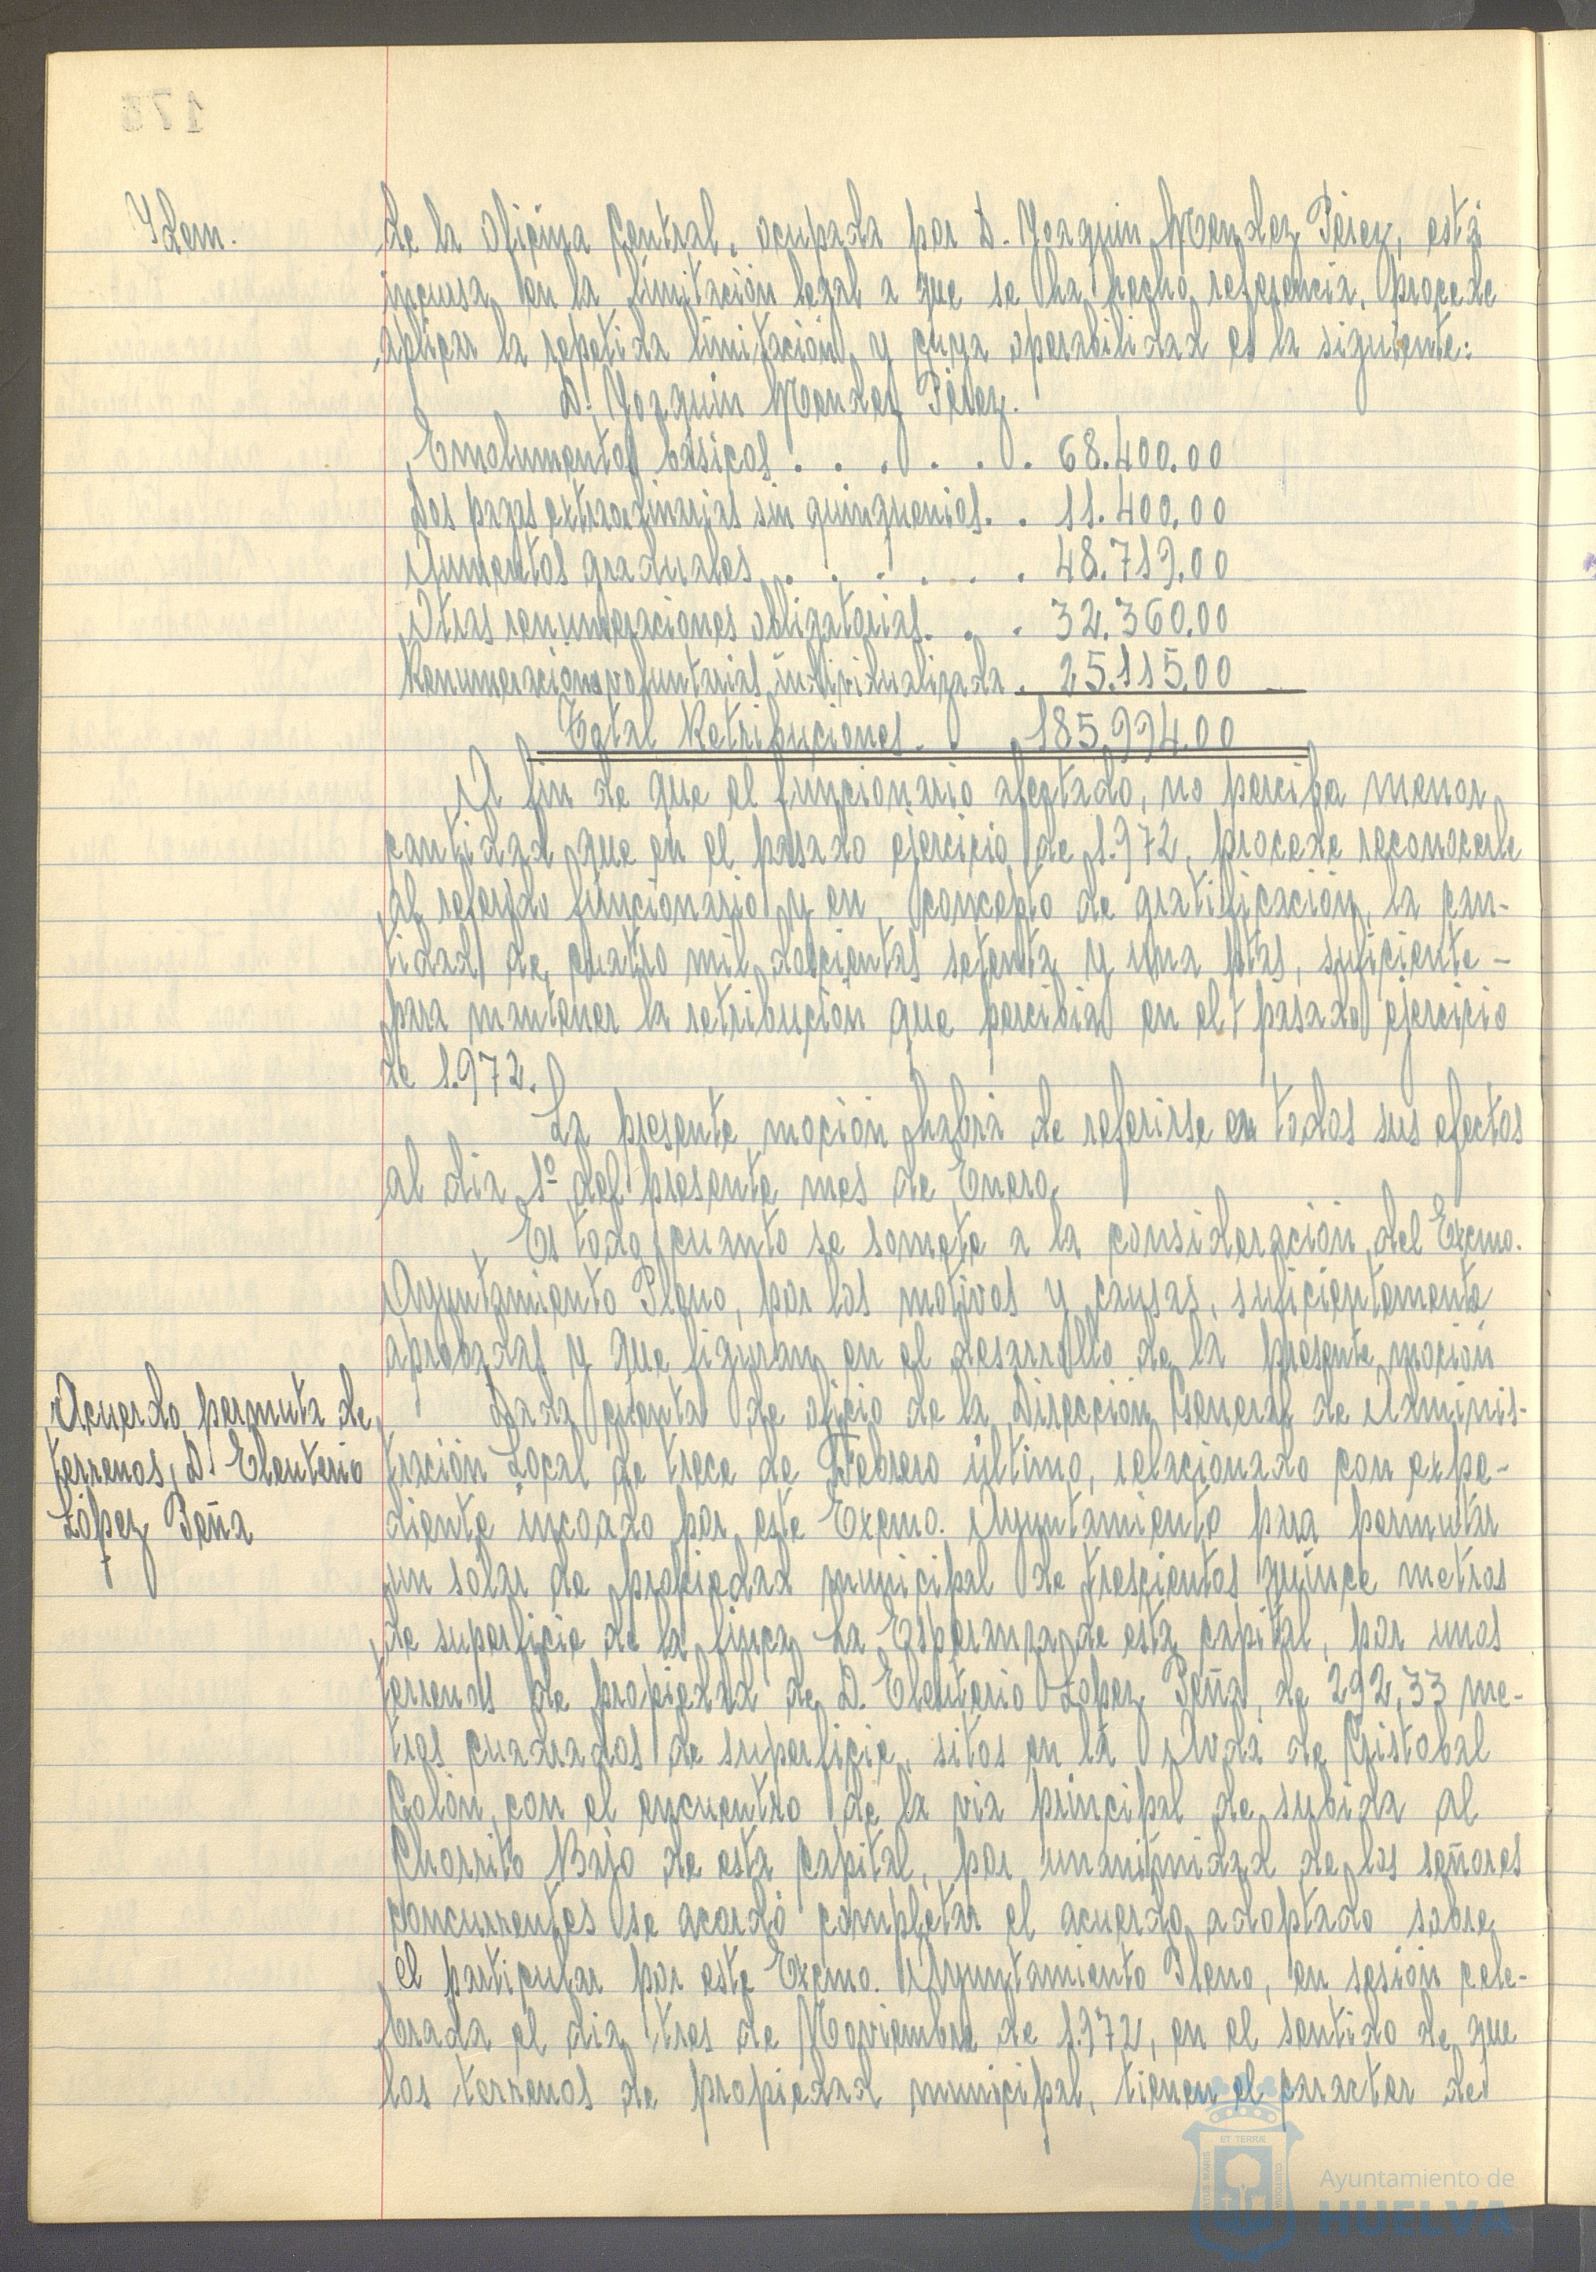 Idem.
de la Oficina Central, ocupada por D. Joaquin Mendez Pérez, está
incursa en la limitación legal a que se ha hecho referencia, procede
aplicar la repetida limitación y cuya operabilidad es la siguiente:
D. Joaquin Mendez Pérez.
Emolumentos básicos . . . . . . 68.400.00
Dos pagas extraordinarias sin quinquenios. . 11.400.00
Aumentos graduales . . . . . . 48.719.00
Otras renumeraciones obligatorias. . . 32.360.00
Renumeraciones voluntarias individualizada . 25.115.00
Total Retribuciones. 185.994.00
A fin de que el funcionario afectado, no perciba menor
cantidad que en el pasado ejercicio de 1.972, procede reconocerle
al referido funcionario y en concepto de gratificación, la can-
tidad de cuatro mil doscientas setenta y una ptas, suficiente -
para mantener la retribución que percibia en el pasado ejercicio
de 1.972.
La presente moción habrá de referirse en todos sus efectos
al dia 1º del presente mes de Enero.
Es todo cuanto se somete a la consideración del Excmo.
Ayuntamiento Pleno, por los motivos y causas, suficientemente
aprobadas y que figuran en el desarrollo de la presente moción
Acuerdo permuta de
terrenos, D. Eleuterio
López Peña
Dada cuenta de oficio de la Dirección General de Adminis-
tración Local de trece de Febrero último, relacionado con expe-
diente incoado por este Excmo. Ayuntamiento para permutar
un solar de propiedad municipal de trescientos quince metros
de superficie de la finca La Esperanza de esta capital, por unos
terrenos de propiedad de D. Eleuterio López Peña, de 292,33 me-
tros cuadrados de superficie, sitos en la Avda de Cristobal
Colón, con el encuentro de la via principal de subida al
Chorrito Bajo de esta capital, por unanimidad de los señores
concurrentes se acordó completar el acuerdo adoptado sobre
el particular por este Excmo. Ayuntamiento Pleno, en sesión cele-
brada el dia tres de Noviembre de 1.972, en el sentido de que
los terrenos de propiedad municipal, tienen el caracter de
ET TERRÆ
Ayuntamiento de
HUELVA